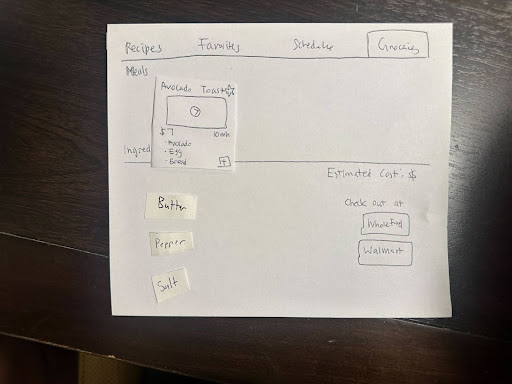 Recipes Favorites Schedule Groceries
Meals
Avocado Toast
$7 10min
- Avocado
- Egg
- Bread
+
Ingred
Estimated Cost: $
Butter
Check out at
Whole Food
Pepper
Walmart
Salt